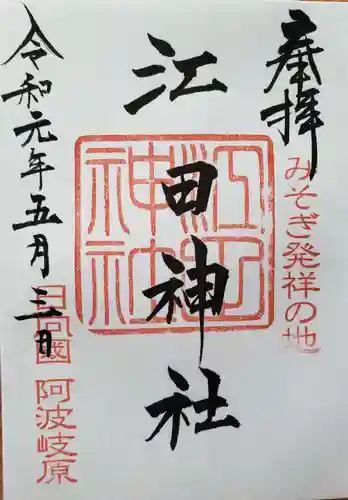 奉拝
みそぎ発祥の地
江田神社
江田神社
令和元年五月三日
日向國
阿波岐原